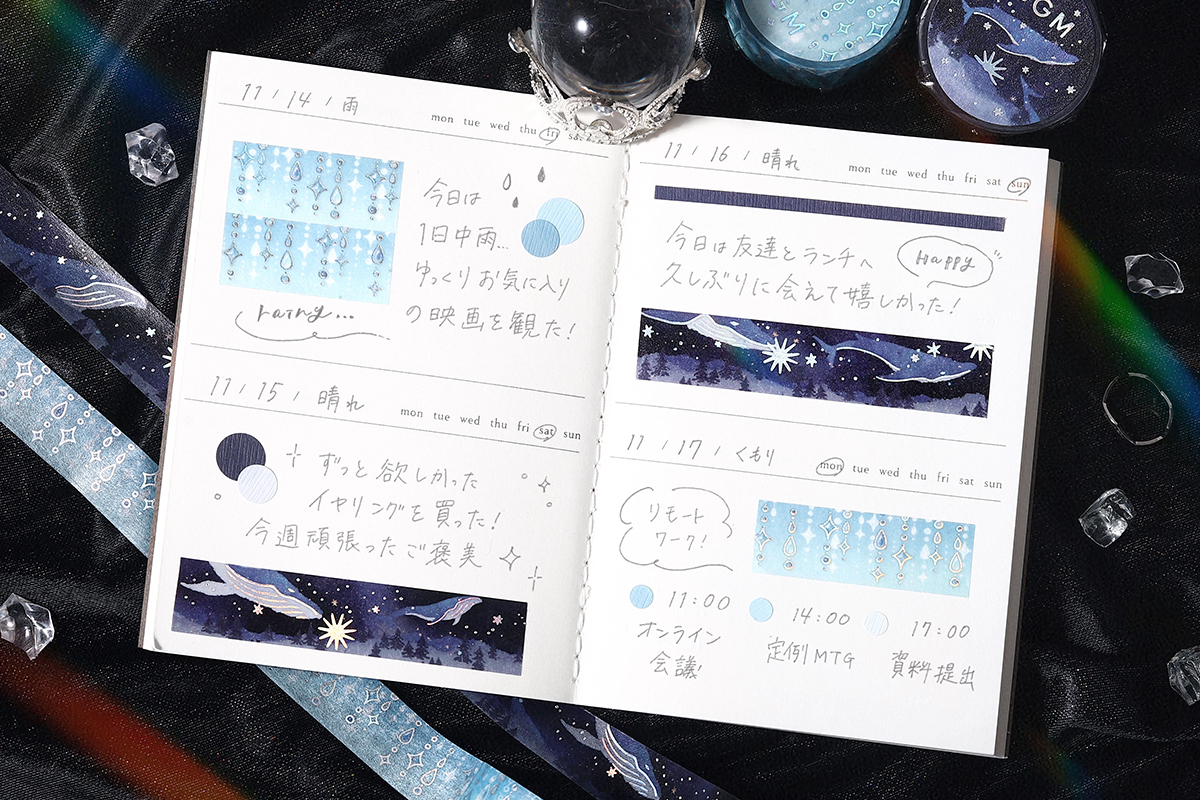 11 / 14 / 雨
mon tue wed thu fri sat
今日は
1日中雨...
ゆっくりお気に入り
の映画を観た!
rainy...
11 / 15 / 晴れ
mon tue wed thu fri sat sun
ずっと欲しかった
イヤリングを買った!
今週頑張ったご褒美
11 / 16 / 晴れ
mon tue wed thu fri sat sun
今日は友達とランチへ
久しぶりに会えて嬉しかった!
Happy
11 / 17 / くもり
mon tue wed thu fri sat sun
リモート
ワーク!
11:00
オンライン
会議!
14:00
定例MTG
17:00
資料提出
GM
GM